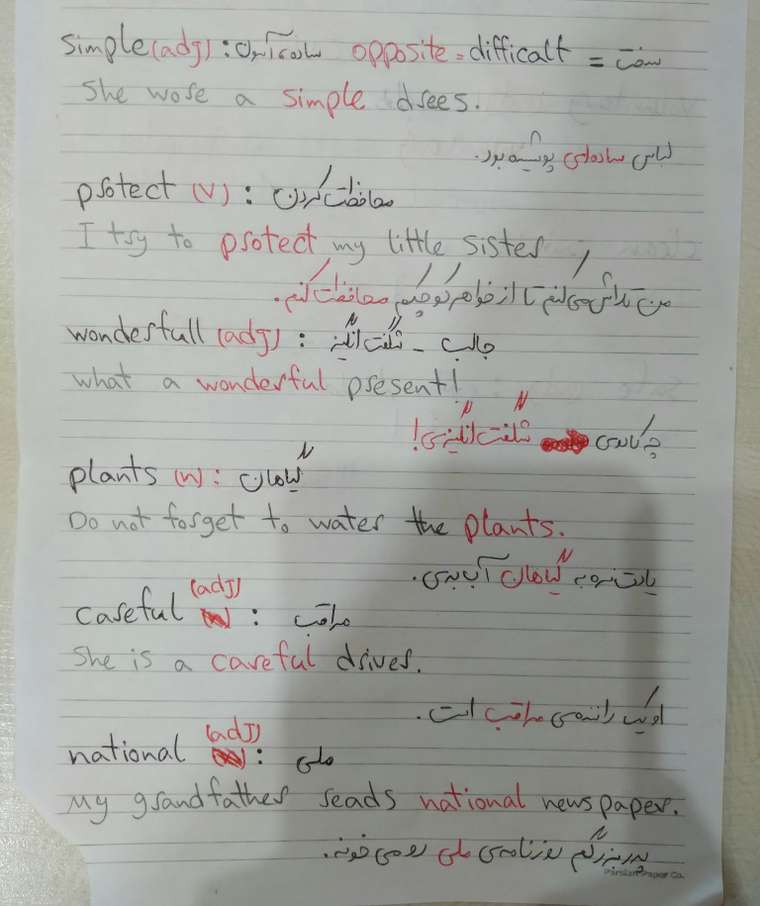 simple(adj): ساده، آسان opposite = difficalt = سخت
She wore a simple drees.
لباس ساده‌ای پوشیده بود.
protect (v): محافظت کردن
I try to protect my little sister
من تلاش می‌کنم تا از خواهر کوچیکم محافظت کنم.
wonderfull (adj): شگفت انگیز - جالب
what a wonderful present!
چه کادوی شگفت انگیزی!
plants (n): گیاهان
Do not forget to water the plants.
یادت نره به گیاهان آب بدی.
(adj)
careful : مراقب
She is a careful driver.
او یک راننده‌ی مراقب است.
(adj)
national : ملی
My grandfather reads national newspaper.
پدربزرگم روزنامه‌ی ملی رو می‌خونه.
Parsian Paper Co.